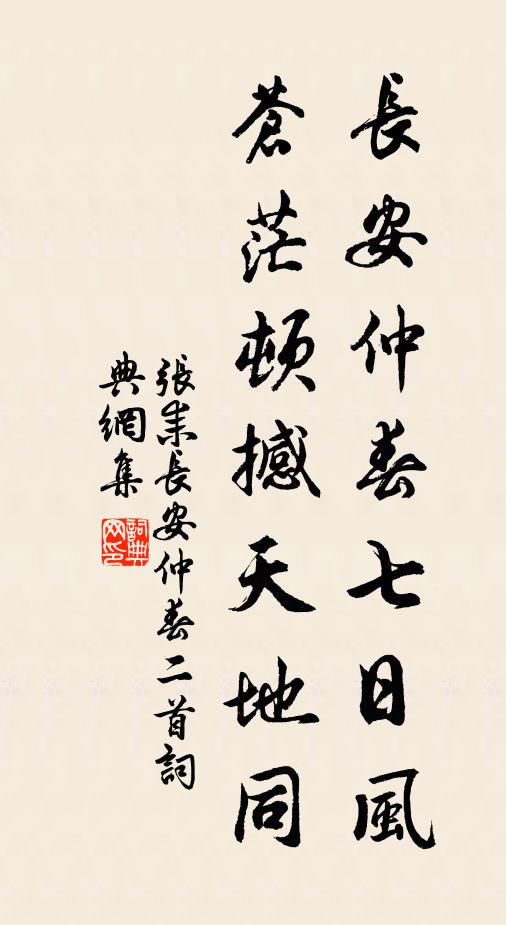 長安仲春七日風
蒼茫頓撼天地同
張耒長安仲春二首詞
典網集
詞典
网印